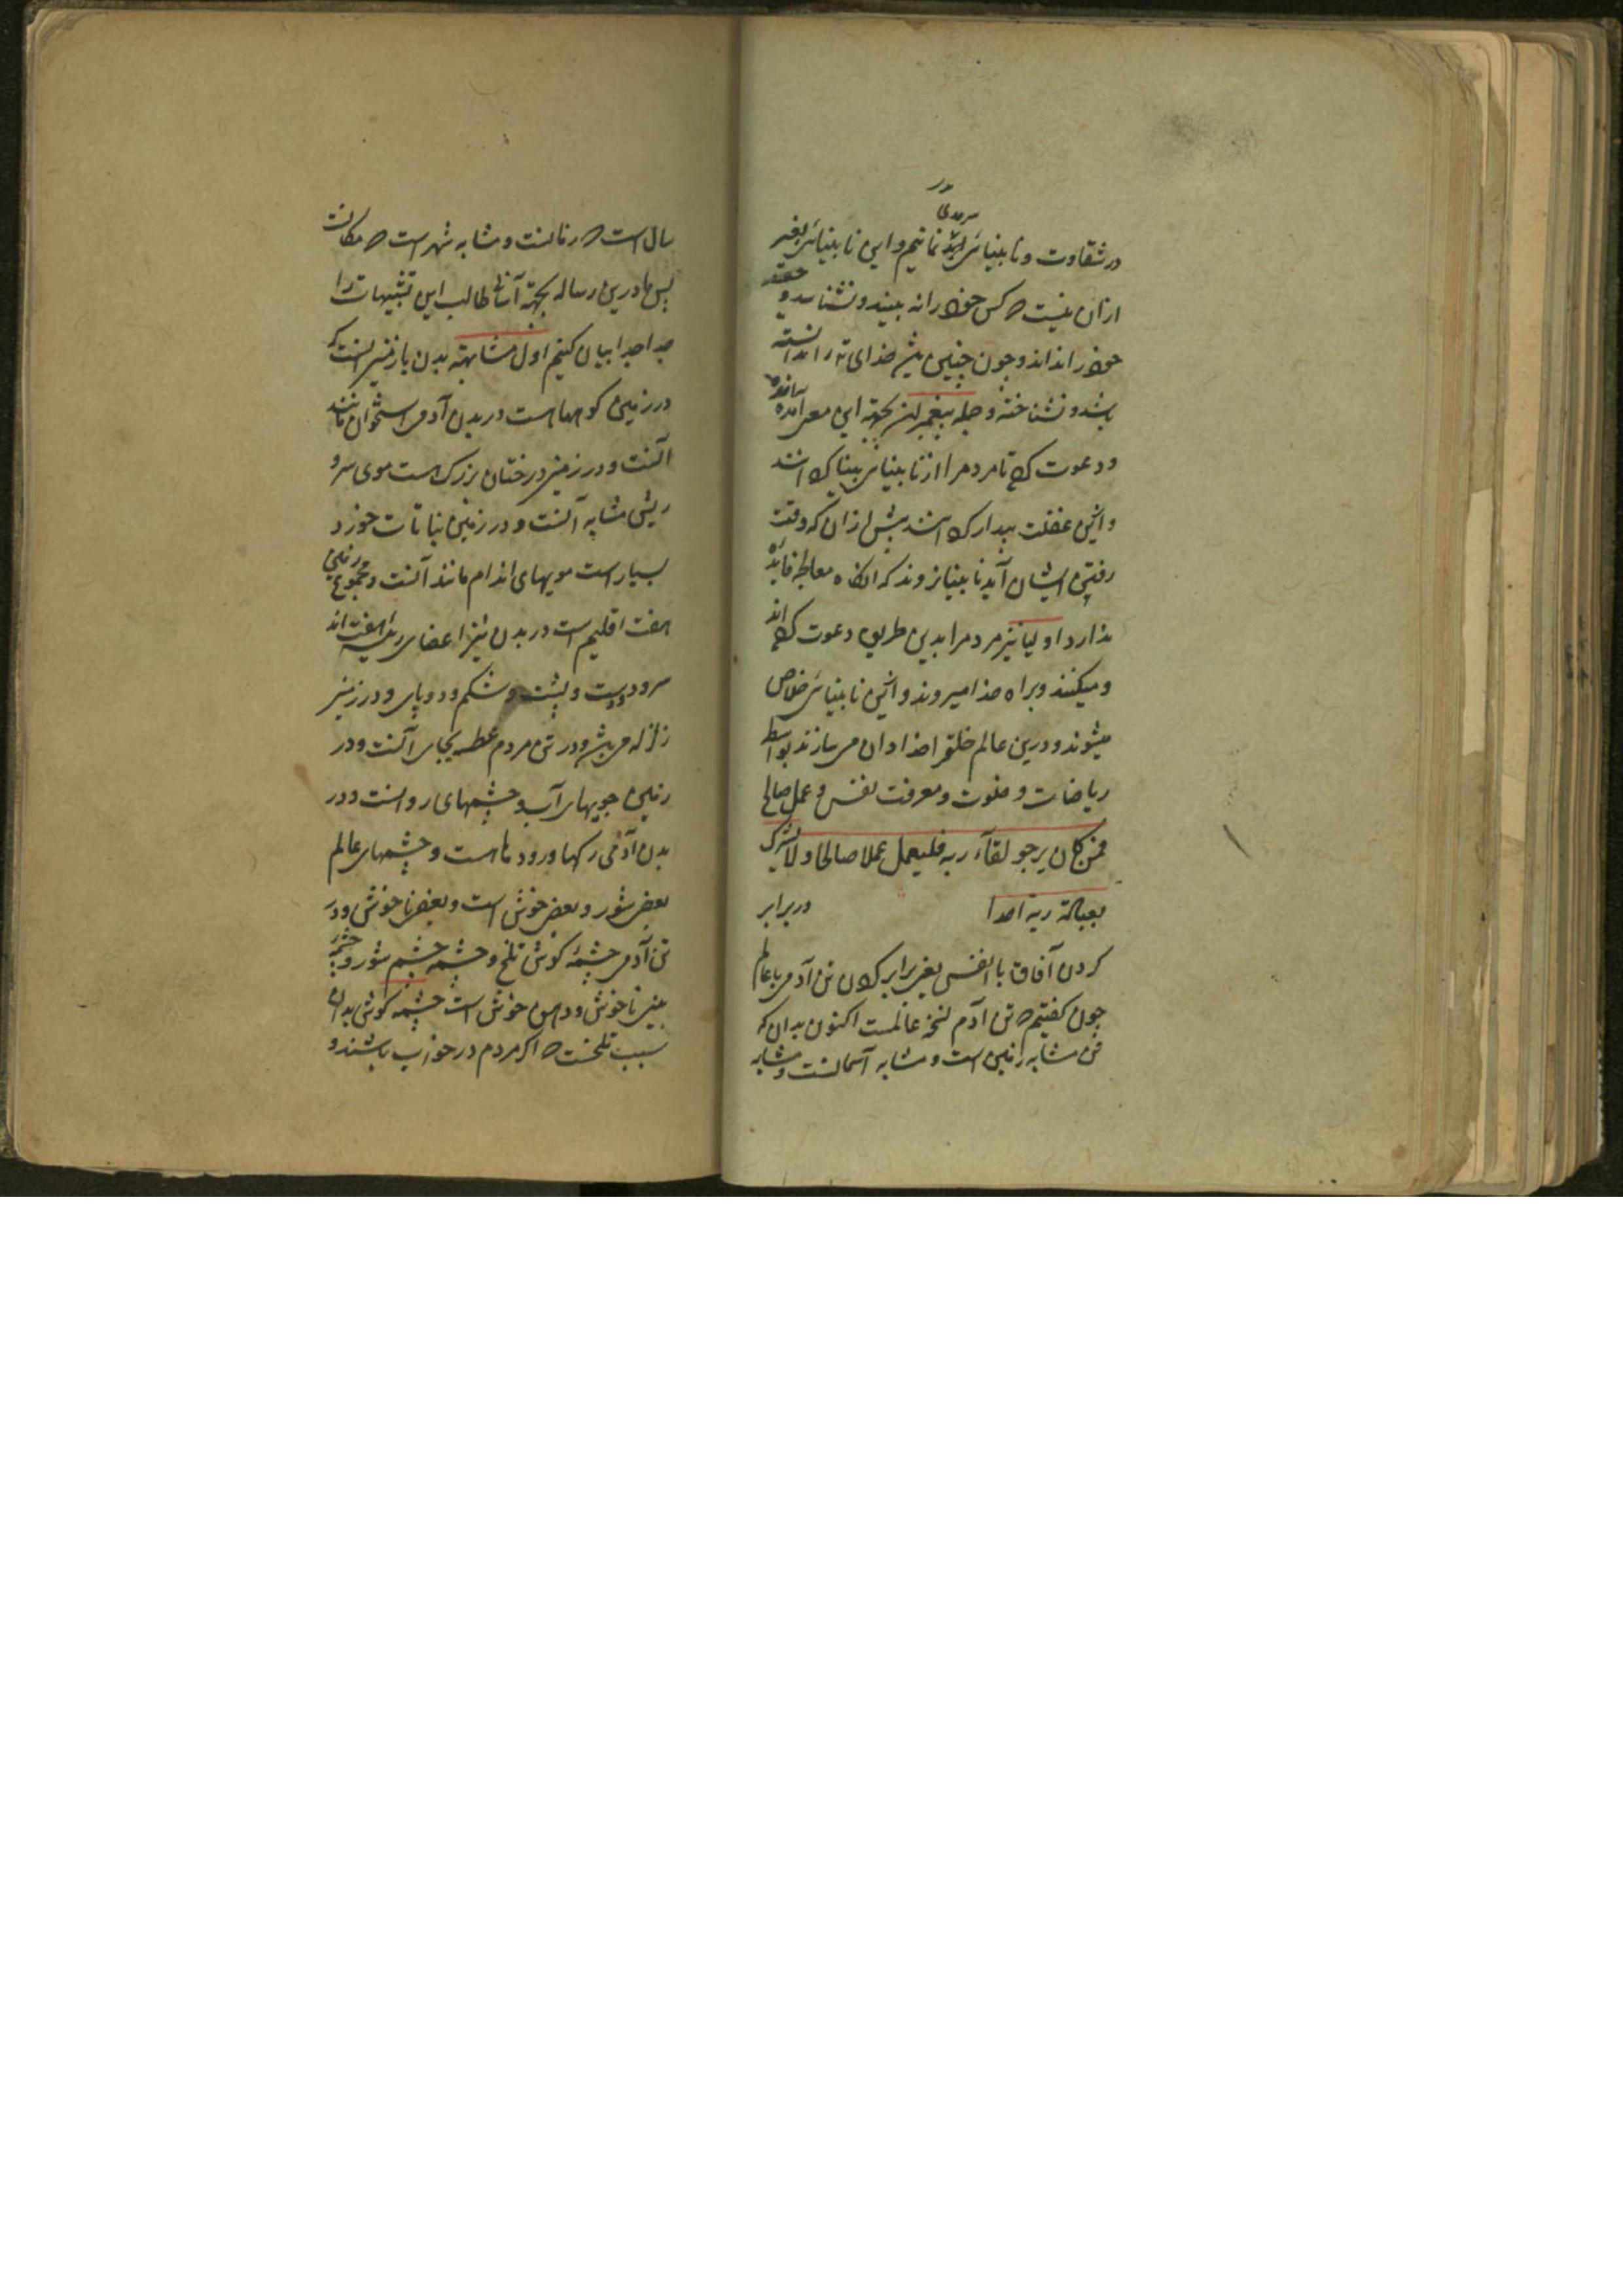 در شقاوت و نابینائی سرمدی نمانیم و این نابینائی بغیر
ازان نیست که کس خود را نه بیند و نشناسد و
خود را نداند و چون چنین باشد خدای را ندانسته
باشد و نشناخته و جمله پیغمبران بجهة این معنی آمده
و دعوت کرده تا مردم را از نابینائی بینا کرده اند
و ازین غفلت بیدار کرده اند پیش ازان که وقت
رفتن ایشان آید نابینا نروند که آنگاه معالجه فایده
ندارد اولیا نیز مردم را بدین طریق دعوت کرده اند
و میکنند و براه خدا میروند و ازین نابینائی خلاص
میشوند و درین عالم خلق را خدادان می سازند بواسطه
ریاضات و خلوت و معرفت نفس و عمل صالح
فمن کان یرجو لقاء ربه فلیعمل عملا صالحا ولا یشرک
بعبادة ربه احدا در برابر
کردن آفاق با انفس یعنی برابر کردن تن آدمی با عالم
چون کفتیم که تن آدم نسخه عالمست اکنون بدان که
تن مشابه زمین است و مشابه آسمانست و مشابه
سال است که زمانست و مشابه شهر است که مکانست
پس ما درین رساله بجهة آسانی طالب این تشبیهات را
جدا جدا بیان کنیم اول مشابهة بدن با زمین آنست که
در زمین کوهها است در بدن آدمی استخوان مانند
آنست و در زمین درختان بزرک است موی سر و
ریش مشابه آنست و در زمین نباتات خورد
بسیار است مویهای اندام مانند آنست و مجموع زمین
هفت اقلیم است در بدن نیز اعضای رئیسه هفت اند
سر و دو دست و پشت و شکم و دو پای و در زمین
زلزله می باشد و در تن مردم عطسه بجای آنست و در
زمین جویهای آب و چشمهای روانست و در
بدن آدمی رکها و رودها است و چشمهای عالم
بعضی شور و بعضی خوش است و بعضی ناخوش و در
تن آدمی چشمه کوش تلخ و چشمه چشم شور و چشمه
بینی ناخوش و دهن خوش است چشمه کوش بدان
سبب تلخست که اکر مردم در خواب باشند و